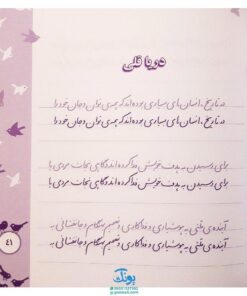 دریا قلی
در تاریخ، انسان های بسیاری بوده اند که همهی توان و جان خود را
در تاریخ، انسان های بسیاری بوده اند که همهی توان و جان خود را
برای رسیدن به هدف خویش فدا کرده اند و گاهی نجات مردمی با
برای رسیدن به هدف خویش فدا کرده اند و گاهی نجات مردمی با
آینده ی ملتی به هوشیاری و فداکاری و تصمیم بهنگام و جانفشانی به
آینده ی ملتی به هوشیاری و فداکاری و تصمیم بهنگام و جانفشانی به
٤١
پونک